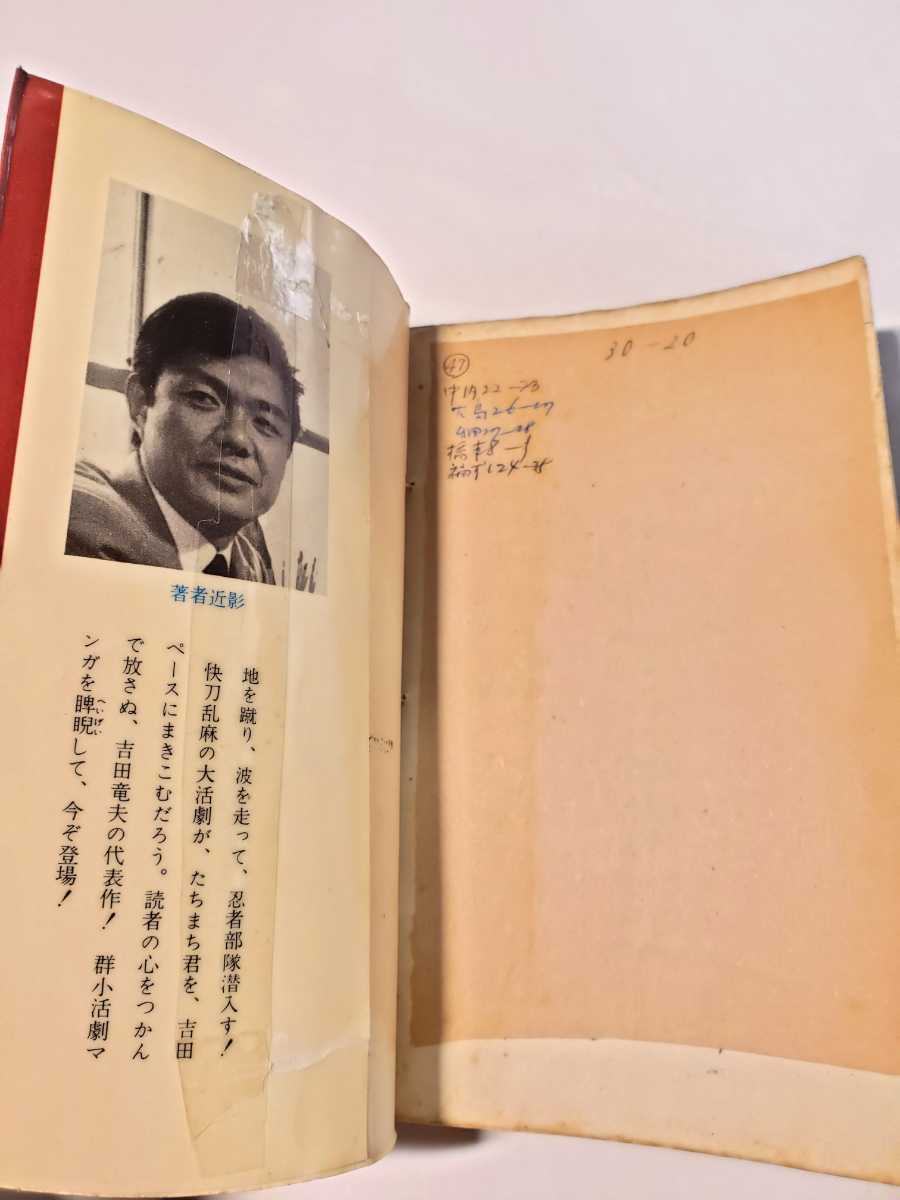 著者近影
地を蹴り、波を走って、忍者部隊潜入す!
快刀乱麻の大活劇が、たちまち君を、吉田
ペースにまきこむだろう。読者の心をつかん
で放さぬ、吉田竜夫の代表作! 群小活劇マ
ンガを睥睨して、今ぞ登場!
へいげい
30-20
47